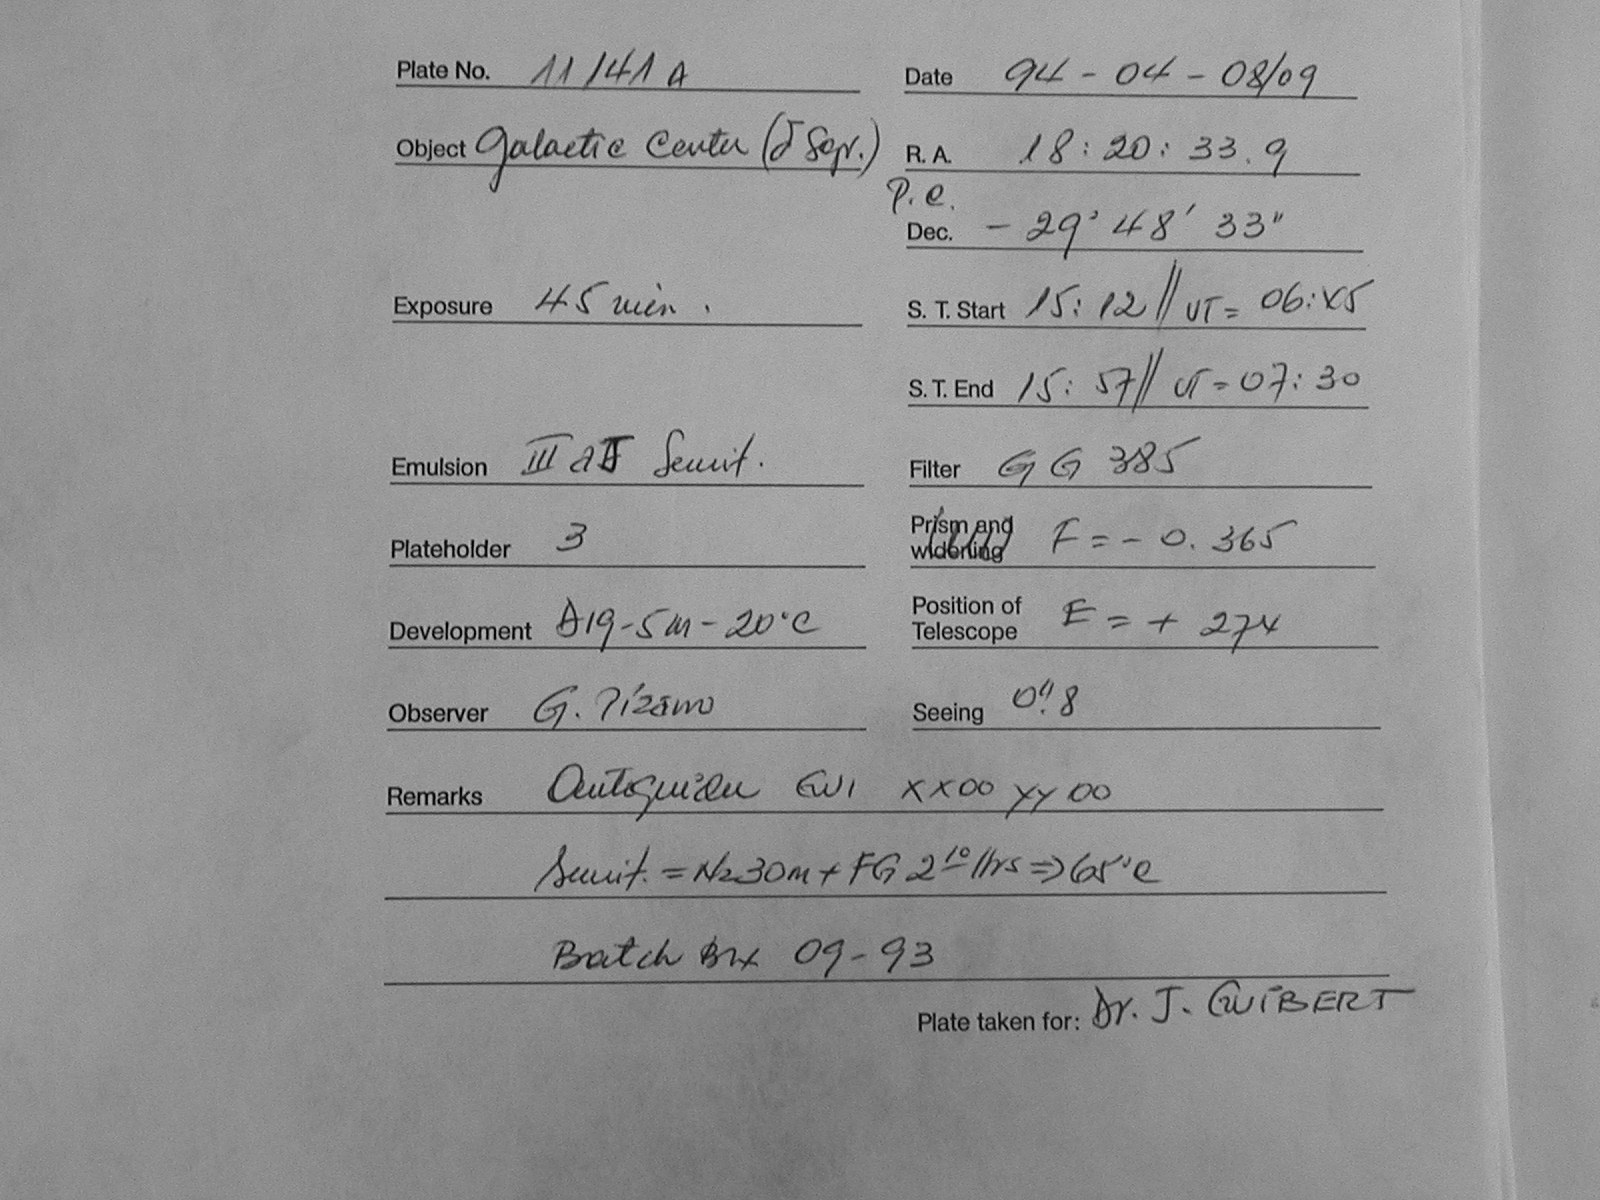 Plate No. 11141 A Date 94-04-08/09
Object Galactic Center (δ Sgr.) R. A. 18:20:33.9
P.e.
Dec. -29° 48' 33"
Exposure 45 min. S. T. Start 15:12 // UT = 06:45
S. T. End 15:57 // UT = 07:30
Emulsion III aJ Sensit. Filter GG 385
Plateholder 3 Prism and widening F = - 0.365
Development D19-5m-20°C Position of Telescope E = + 274
Observer G. Pizarro Seeing 0".8
Remarks Autoguider GW1 XX00 YY00
Sensit. = N2 30m + FG 2 hrs ⇒ 65°C
Batch 09-93
Plate taken for: Dr. J. GUIBERT